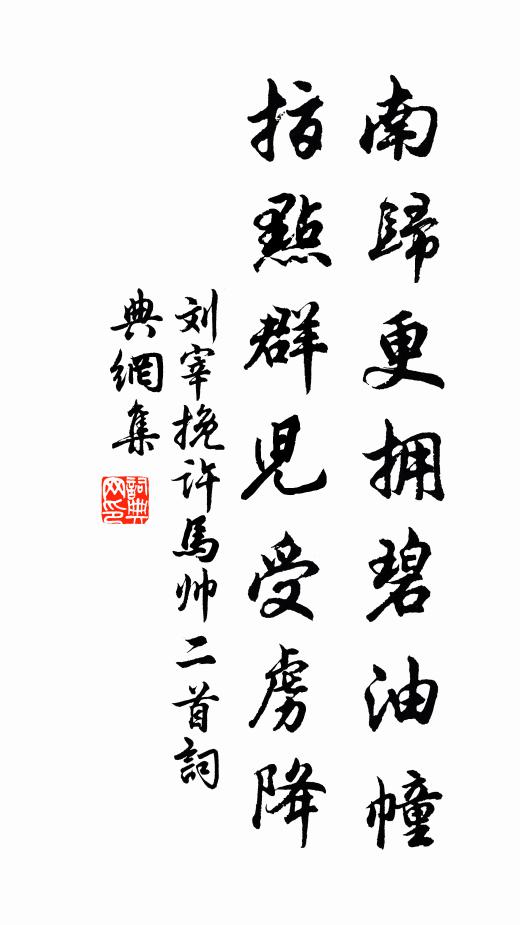 南歸更拥碧油幢
指點群児受虜降
刘宰挽许馬帅二首詞
典網集
詞典网印